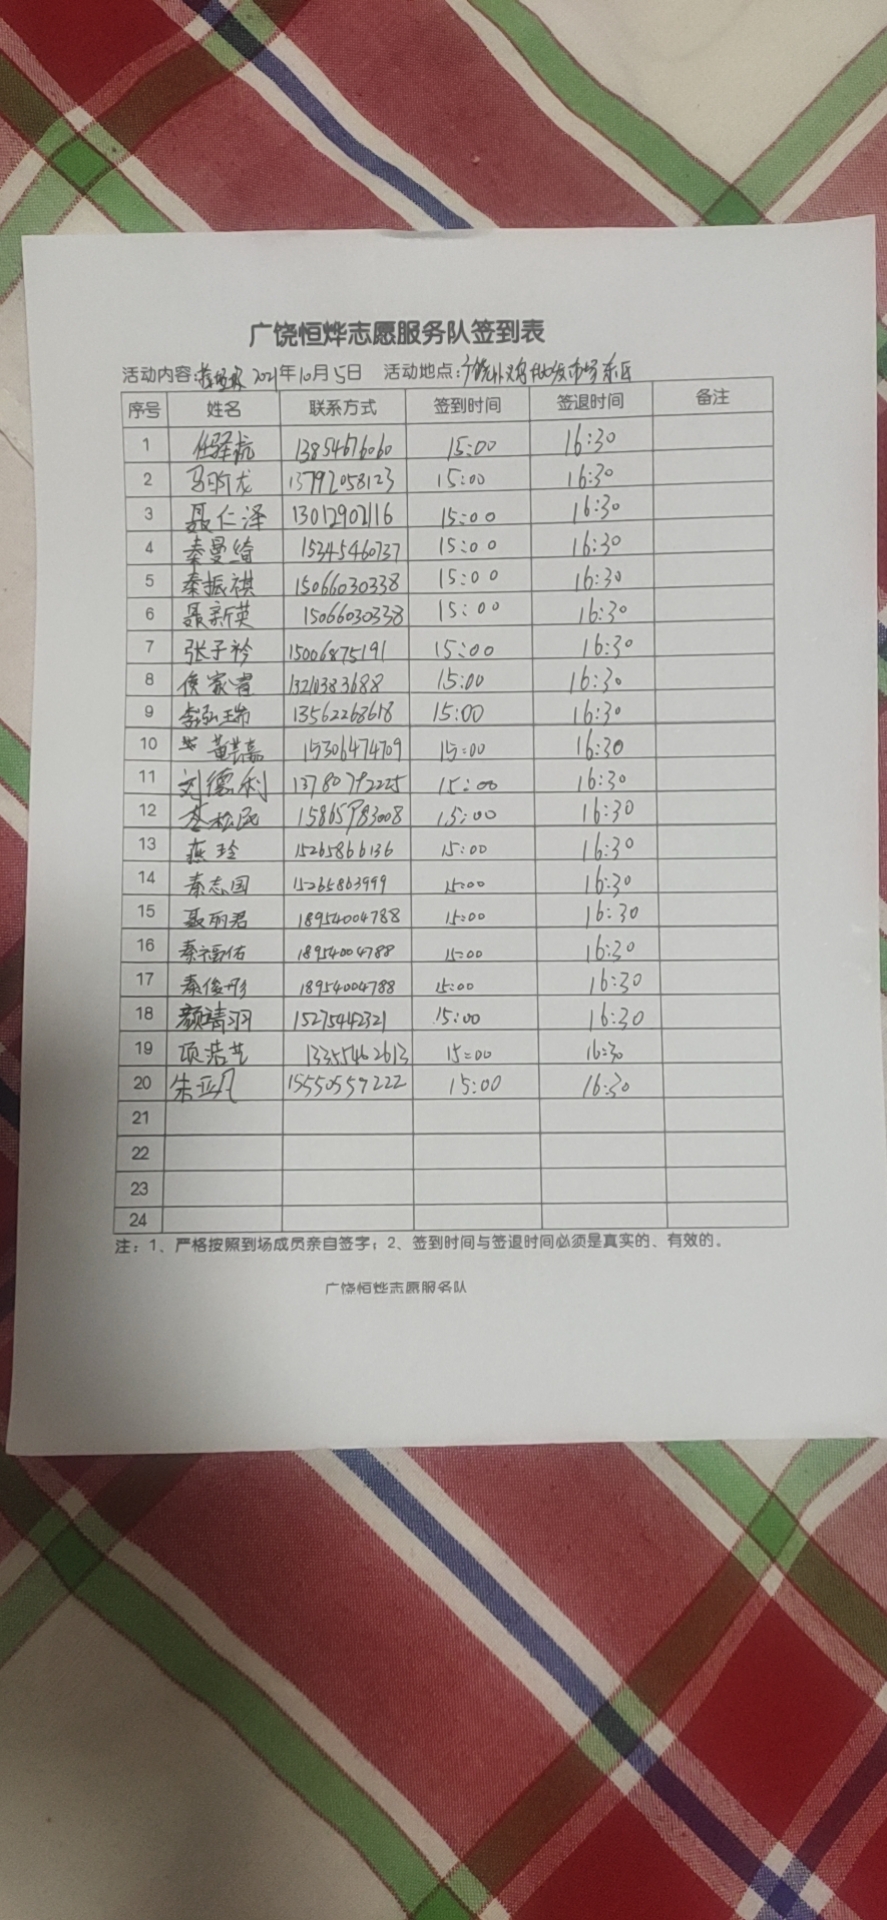 广饶恒烨志愿服务队签到表
活动内容: 2021年10月5日 活动地点:广饶 批发市场东区
序号 姓名 联系方式 签到时间 签退时间 备注
1 任驿航 13854676060 15:00 16:30
2 马昀龙 13792058123 15:00 16:30
3 聂仁泽 13012902116 15:00 16:30
4 秦曼绮 15345460737 15:00 16:30
5 秦振祺 15066030338 15:00 16:30
6 聂新英 15066030338 15:00 16:30
7 张子衿 15006875191 15:00 16:30
8 侯家睿 13210383688 15:00 16:30
9 李弘瑞 13562268618 15:00 16:30
10 黄芸嘉 15306474709 15:00 16:30
11 刘德利 13780792225 15:00 16:30
12 松民 15865983008 15:00 16:30
13 燕玲 15265866136 15:00 16:30
14 秦志国 15265863999 15:00 16:30
15 聂丽君 18954004788 15:00 16:30
16 秦福佑 18954004788 15:00 16:30
17 秦俊彤 18954004788 15:00 16:30
18 颜靖羽 15275442321 15:00 16:30
19 项浩艺 13355462613 15:00 16:30
20 朱亚凡 15550557222 15:00 16:30
21
22
23
24
注:1、严格按照到场成员亲自签字;2、签到时间与签退时间必须是真实的、有效的。
广饶恒烨志愿服务队